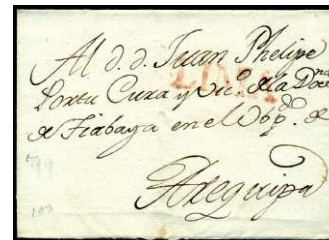 Al d.d. Juan Phelipe
LIMA
Portu Cura y Vic.º de la Doc.na
de Tiabaya en el Obp.do de
Arequipa
99